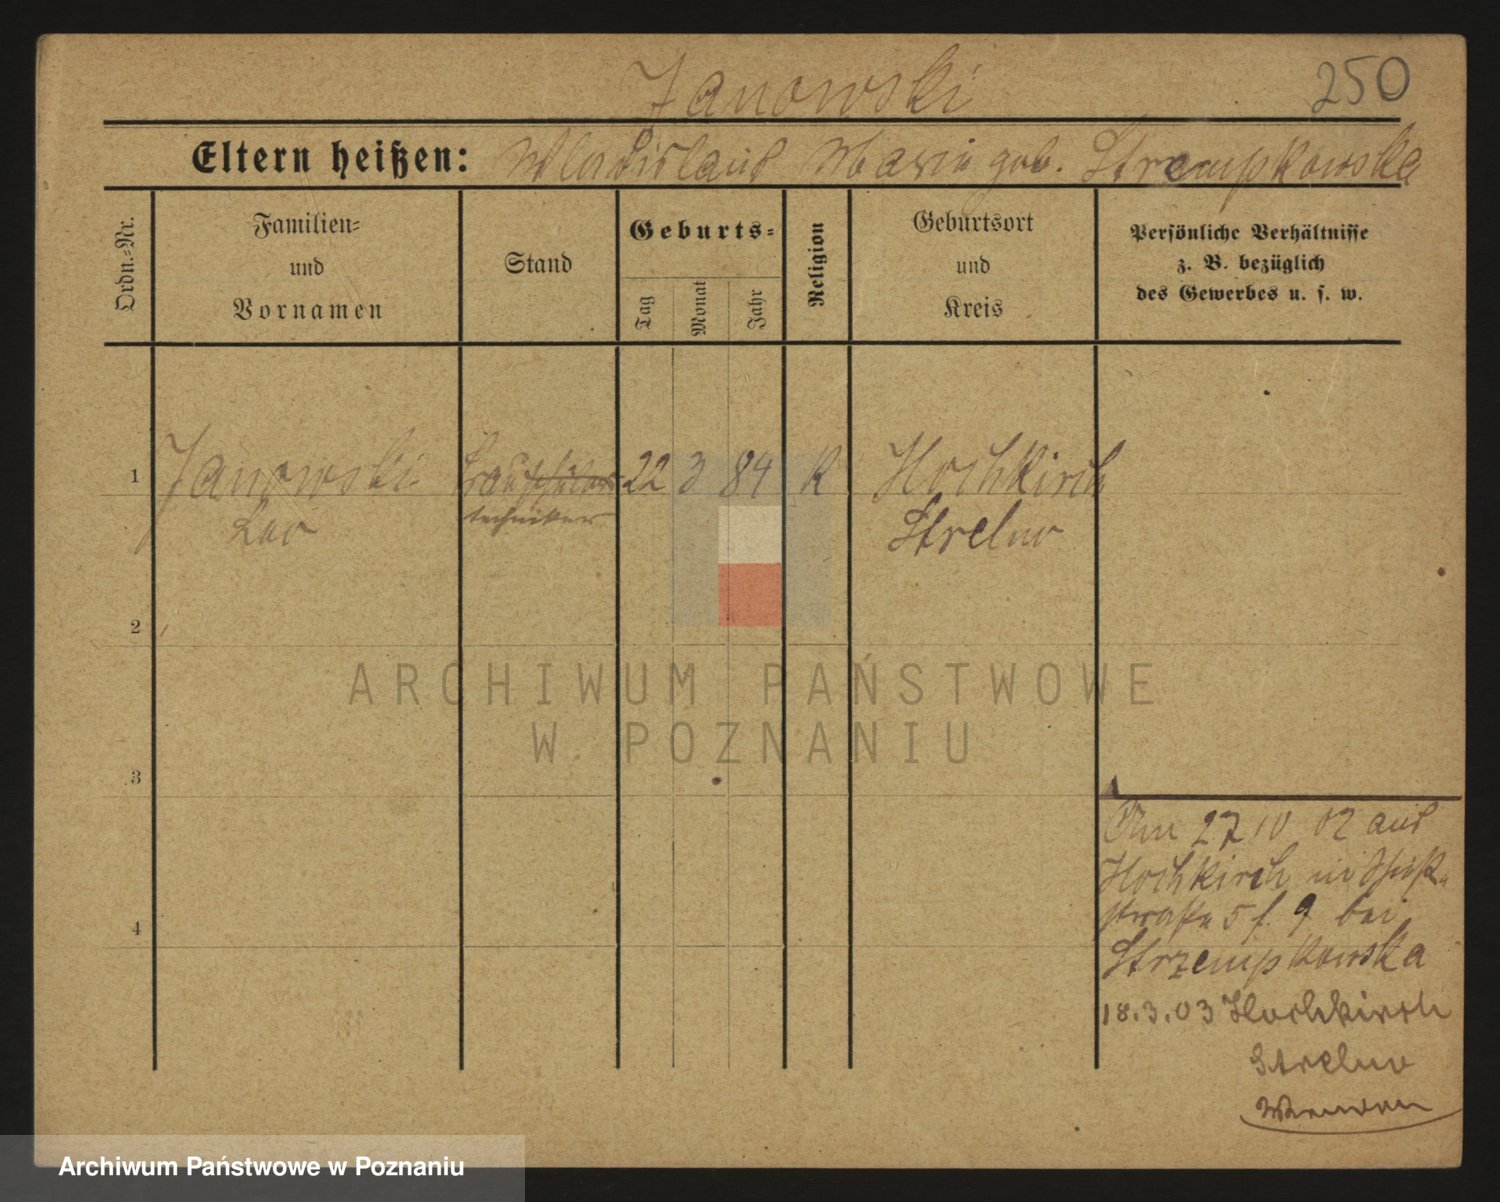 Janowski
250
Eltern heißen: Wladislaus Marie geb. Strempkowska
Ordn.-Nr.
Familien-
und
Vornamen
Stand
Geburts-
Tag
Monat
Jahr
Religion
Geburtsort
und
Kreis
Persönliche Verhältnisse
z. B. bezüglich
des Gewerbes u. s. w.
1
Janowski
Leo
techniker
22 3 84 K
Hochkirch
Strelno
2
3
4
Am 27 10 02 aus
Hochkirch in
straße 5 f. 9 bei
Strzempkowska
18.3.03 Hochkirch
Strelno
ARCHIWUM PAŃSTWOWE
W POZNANIU
Archiwum Państwowe w Poznaniu